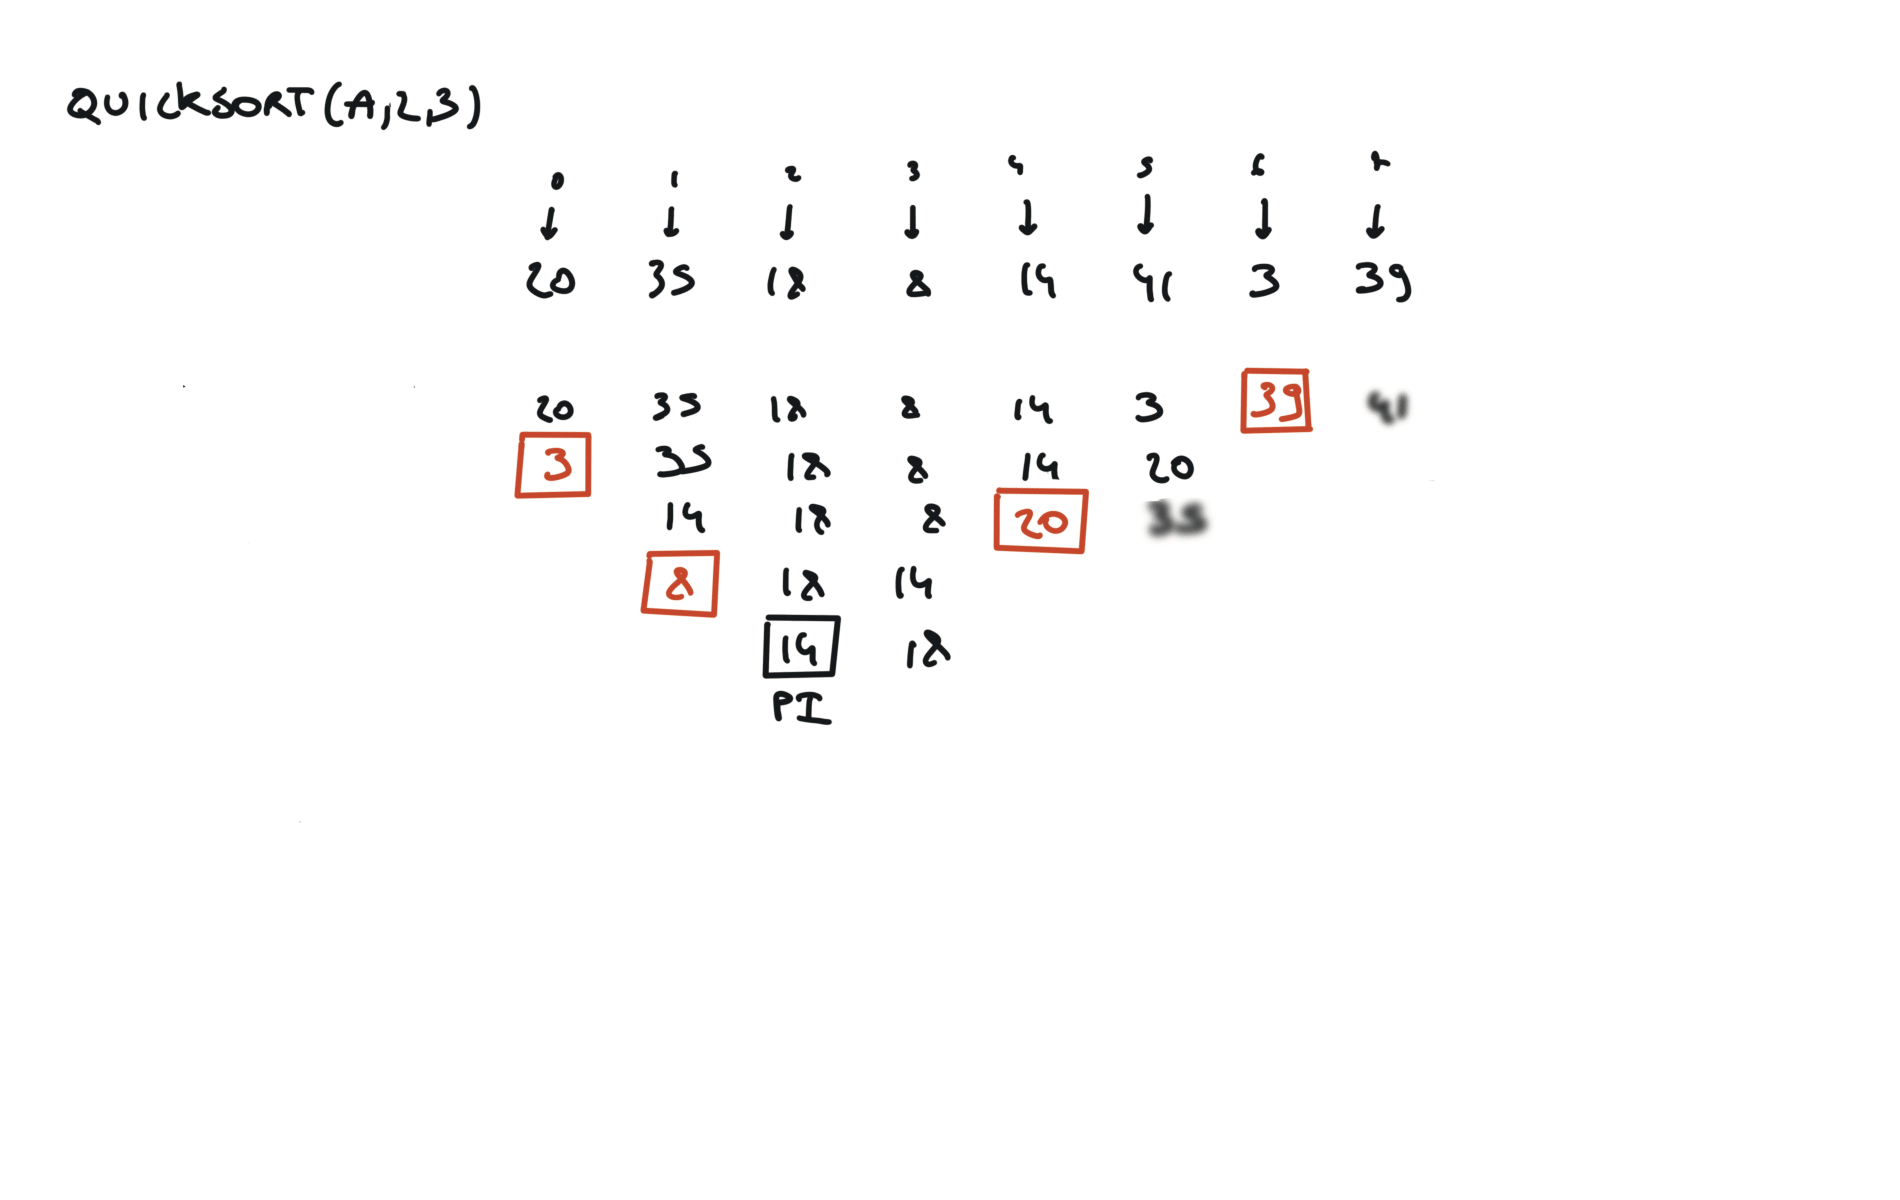 QUICKSORT(A,2,3)
0 1 2 3 4 5 6 7
20 35 18 8 14 41 3 39
20 35 18 8 14 3 39 41
3 35 18 8 14 20
14 18 8 20 35
8 18 14
14 18
PI